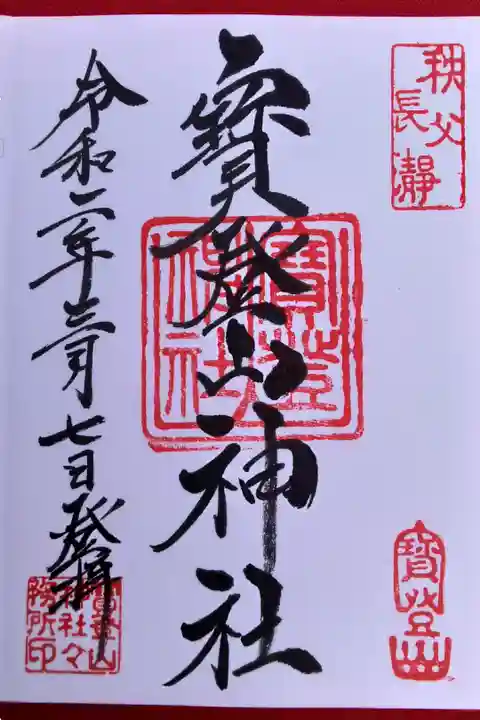 秩父
長瀞
寳登山神社
寳登山
令和二年三月七日登拝
寳登山
神社々
務所印